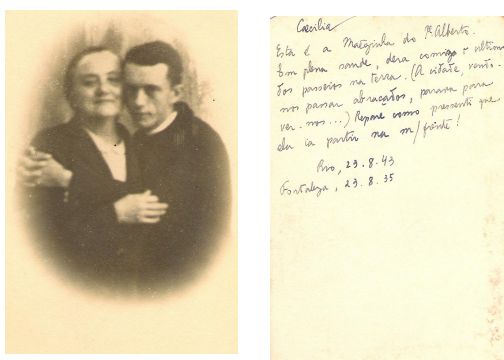 Cecilia
Esta é a Mãezinha do Pe. Alberto.
Em plena saude, dera comigo o ultimo
dos passeios na terra. (A cidade, vendo-
nos passar abraçados, parava para
ver-nos...) Repare como pressenti que
ela ia partir na m/ frente!
Rio, 23.8.43
Fortaleza, 23.8.35